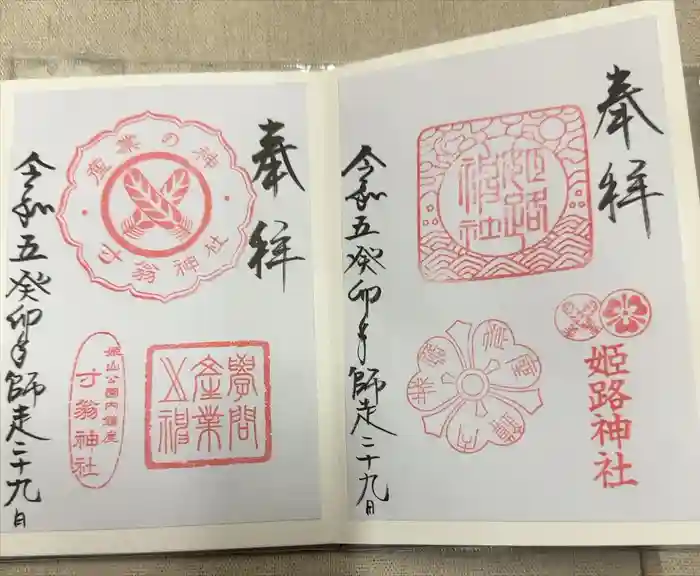 奉拝
姫路神社
姫路神社
令和五癸卯年師走二十九日
奉拝
産業の神
寸翁神社
學問
産業
姫山公園内鎮座
寸翁神社
令和五癸卯年師走二十九日